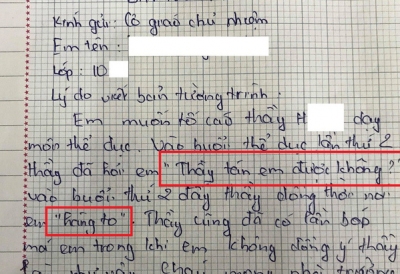 Kính gửi: Cô giáo chủ nhiệm
Em tên :
Lớp : 10
Lý do viết bản tường trình:
Em muốn tố cáo thầy H dạy
môn thể dục. Vào buổi thể dục lần thứ 2
thầy đã hỏi em "Thầy tán em được không?"
vào buổi thứ 2 đấy thầy đồng thời nói
em "Trắng to" Thầy cũng đã có lần bóp
má em trong khi em không đồng ý thầy